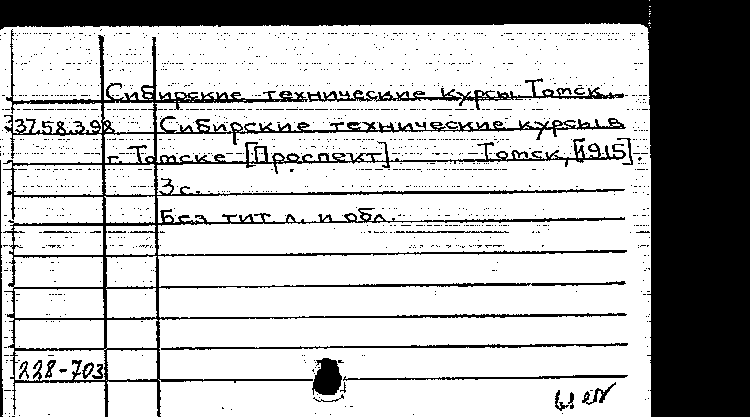 Сибирские технические курсы Томск.
37.58.3.98 Сибирские технические курсы в
г. Томске [Проспект]. Томск, [1915].
3 с.
Без тит. л. и обл.
228-703